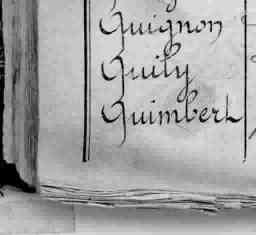 Guignon
Guily
Guimbert